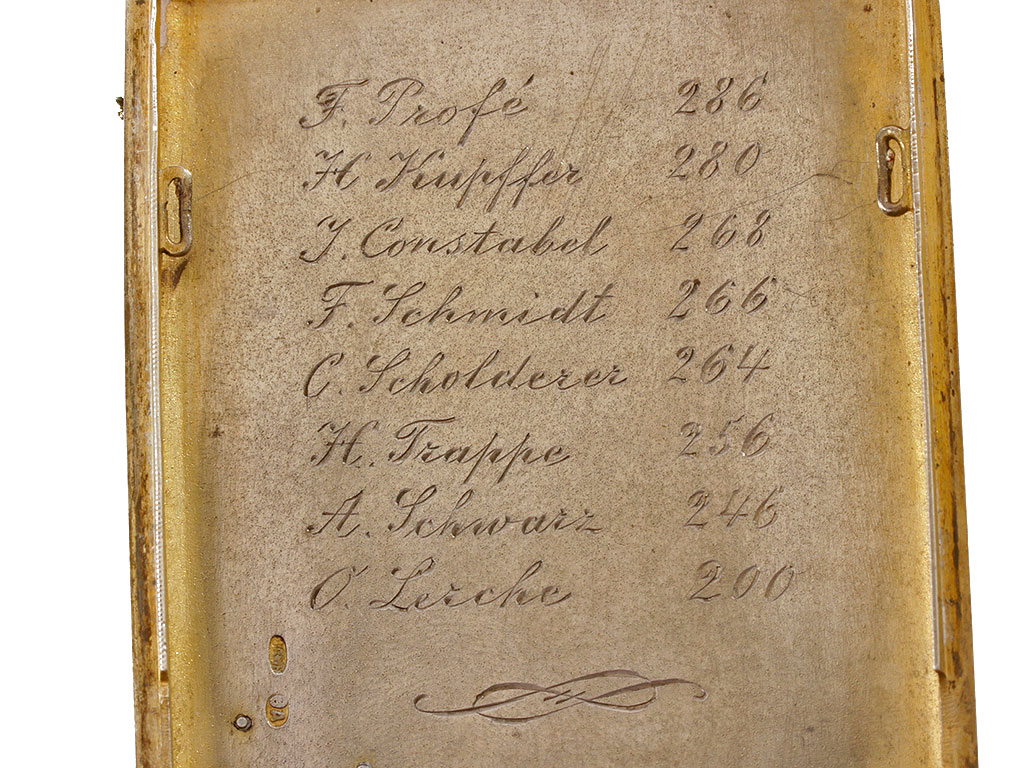 F. Profé 286
H Kupffer 280
J. Constabel 268
F. Schmidt 266
C. Scholderer 264
H. Trappe 256
A. Schwarz 246
O. Lerche 200